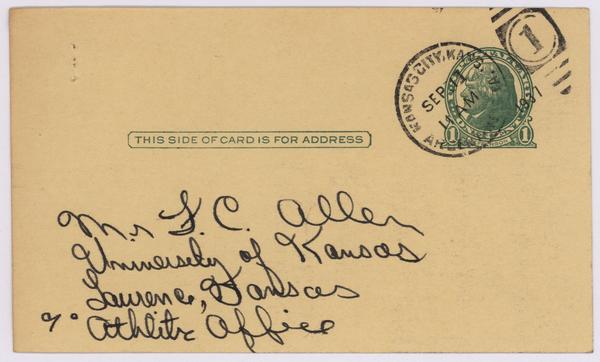 KANSAS CITY, KANS.
SEP 21
11 AM
1
THIS SIDE OF CARD IS FOR ADDRESS
1 1
Mr F. C. Allen
University of Kansas
Laurence, Kansas
% Athlitic Office